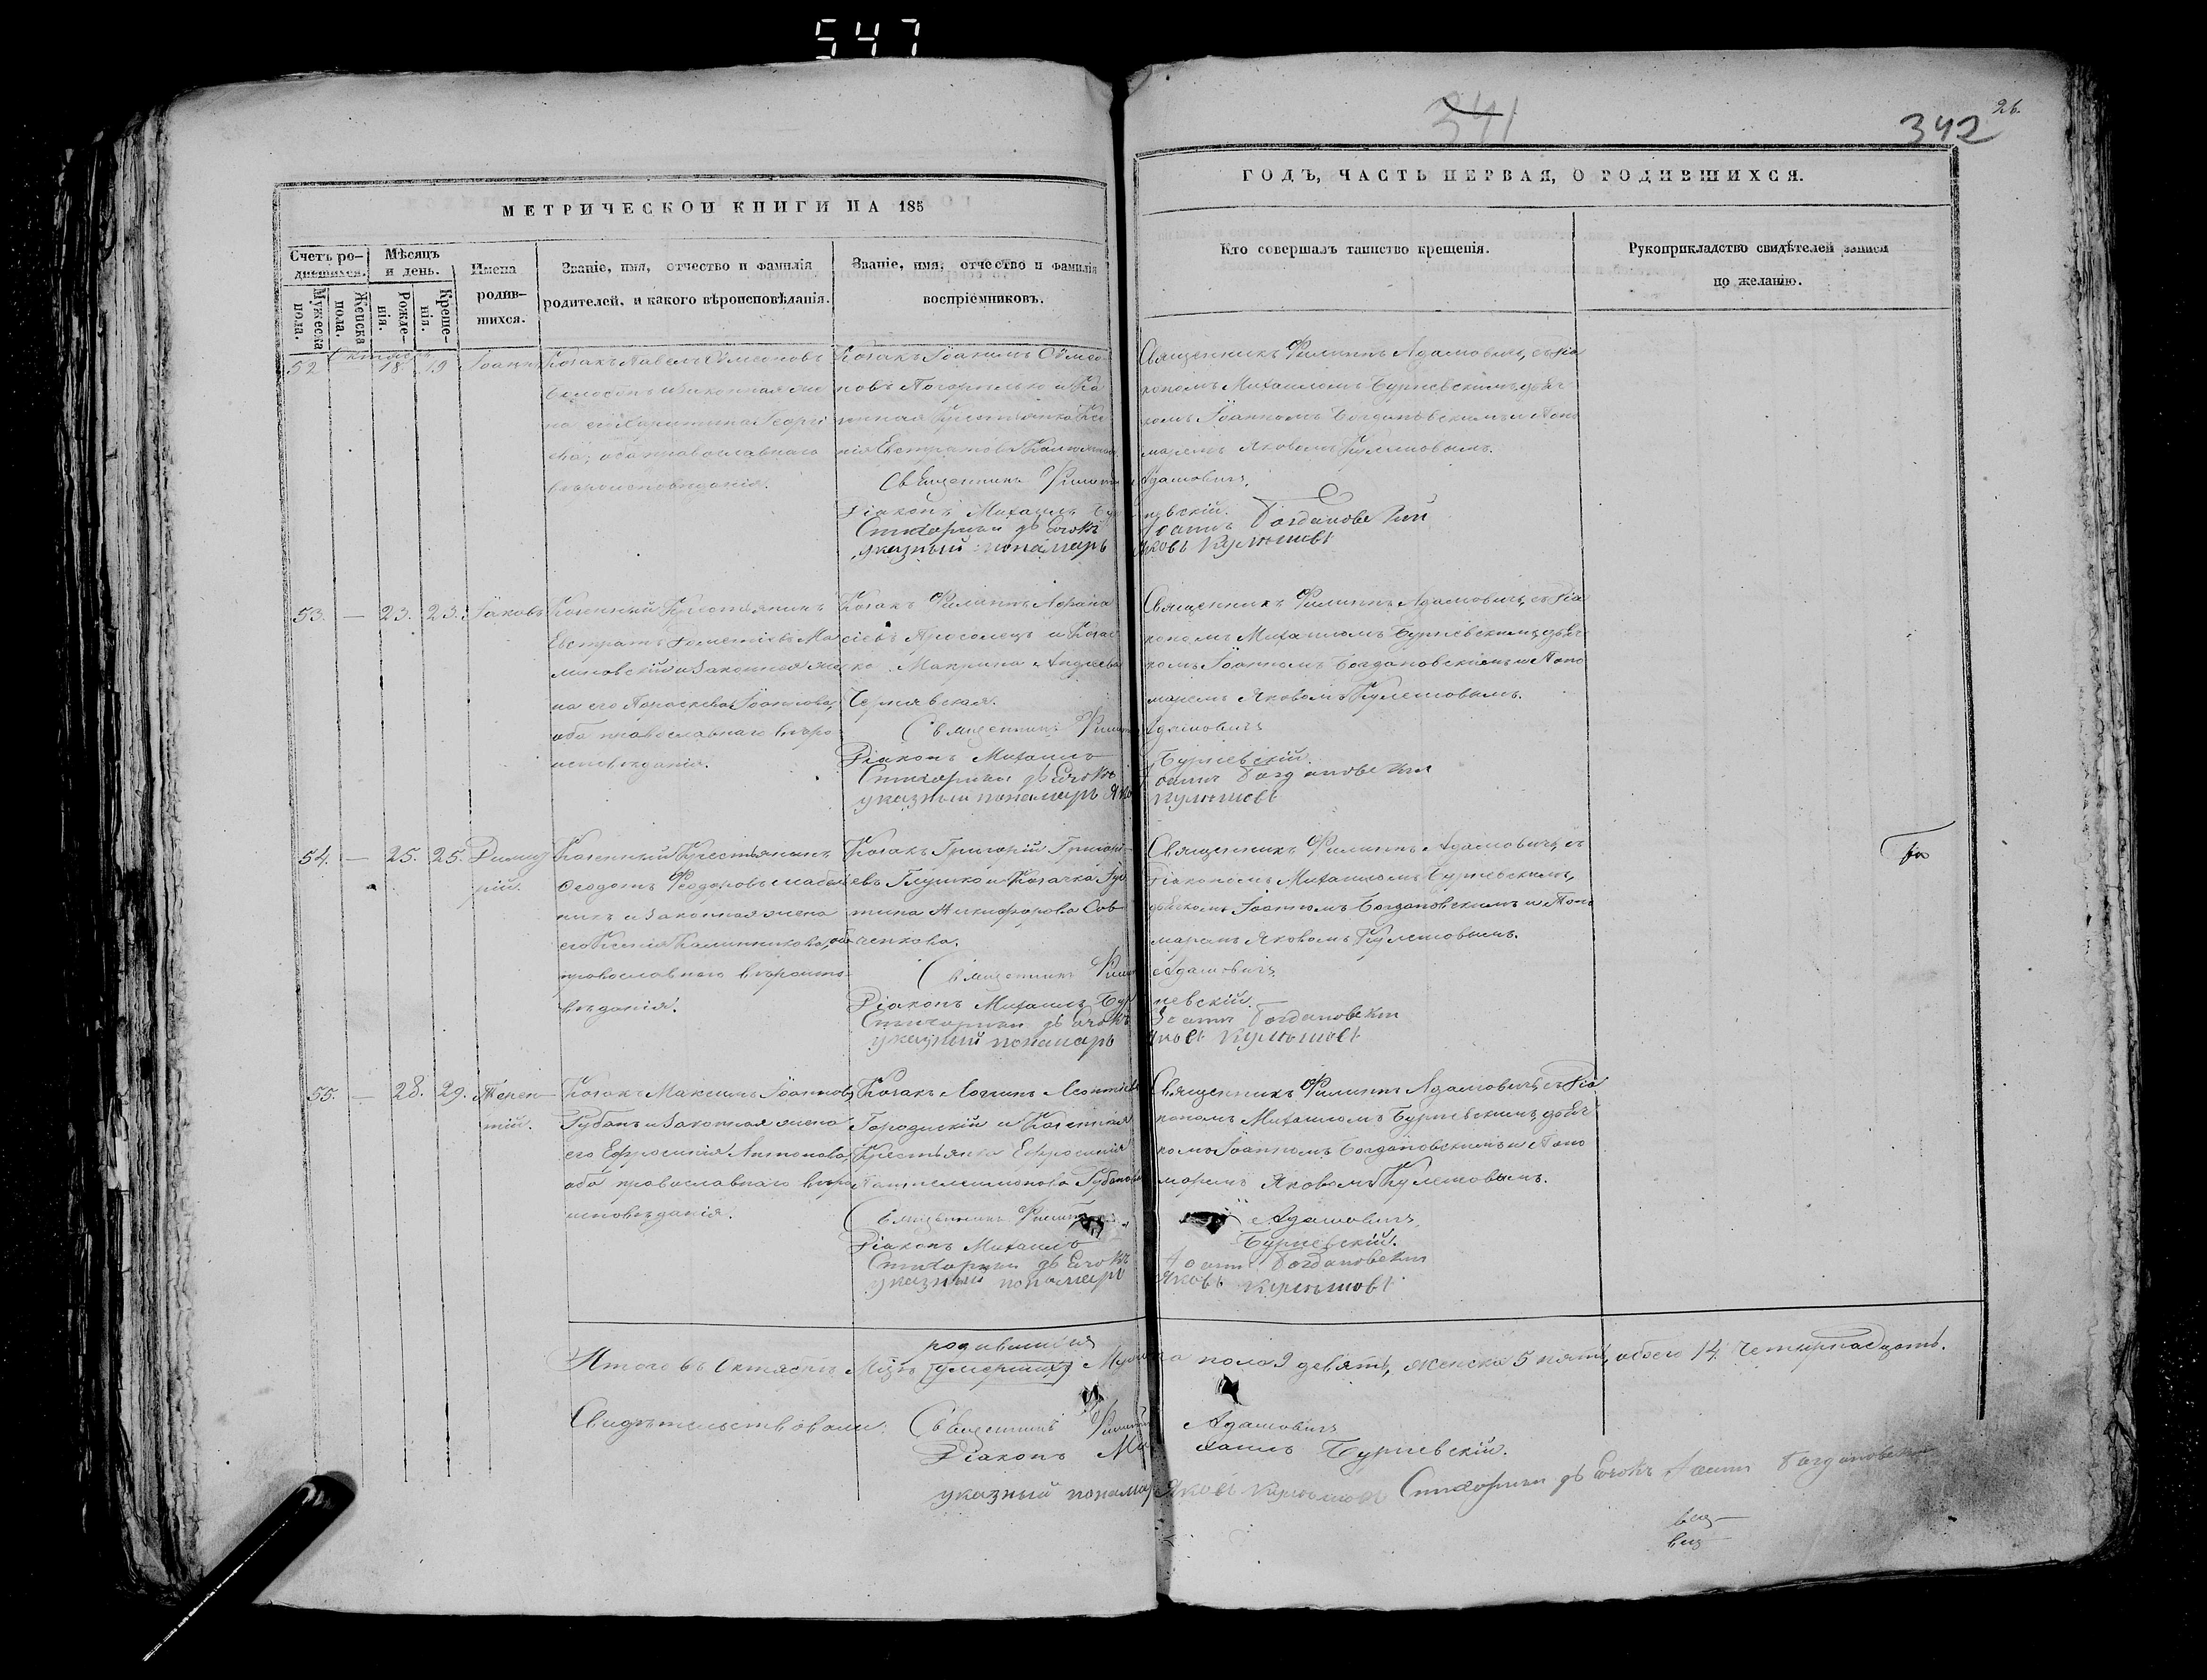 547
341
342
26.
МЕТРИЧЕСКОЙ КНИГИ НА 185
ГОДЪ, ЧАСТЬ ПЕРВАЯ, О РОДИВШИХСЯ.
Счетъ ро-
дившихся.
Мужеска
пола.
Женска
пола.
Мѣсяцъ
и день.
Рожде-
нія.
Креще-
нія.
Имена
родив-
шихся.
Званіе, имя, отчество и фамилія
родителей, и какого вѣроисповѣданія.
Званіе, имя, отчество и фамилія
воспріемниковъ.
Кто совершалъ таинство крещенія.
Рукоприкладство свидѣтелей записи
по желанію.
Октябрь
52 18 19 Іоаннъ
Козакъ Павелъ Сѵмеоновъ
и законная же
на его Харитина Георгі
ева, оба православнаго
вѣроисповѣданія.
Козакъ Іоакимъ Сѵмео
новъ и Ка
зенная Крестьянка
Священникъ Филиппъ Адамовичъ, съ Діа
кономъ Михаиломъ Бурневскимъ, дьяч
комъ Іоанномъ Богдановскимъ и Поно
маремъ Яковомъ Кулешовымъ.
Священникъ Филиппъ Адамовичъ,
Діаконъ Михаилъ Бурневскій.
Стихарный дьячокъ Іоаннъ Богдановскій
указный пономарь Яковъ Кулешовъ
53. — 23. 23. Іаковъ
Казенный Крестьянинъ
Евстратъ
и законная же
на его Параскева Іоаннова,
оба православнаго вѣро
исповѣданія.
Козакъ Филиппъ Афана
сіевъ и Козач
ка Макрина Андреева
Чернявская.
Священникъ Филиппъ Адамовичъ, съ Діа
кономъ Михаиломъ Бурневскимъ, дьяч
комъ Іоанномъ Богдановскимъ и Поно
маремъ Яковомъ Кулешовымъ.
Священникъ Филиппъ Адамовичъ
Діаконъ Михаилъ Бурневскій.
Стихарный дьячокъ Іоаннъ Богдановскій
указный пономарь Яковъ Кулешовъ
54. — 25. 25. Димит
рій.
Казенный Крестьянинъ
Ѳеодотъ Ѳеодоровъ
и законная жена
его Ксенія Каллиникова, оба
православнаго вѣроиспо
вѣданія.
Козакъ Григорій Григорі-
евъ Глушко и Козачка Іус
тина Никифорова Сов
ченкова.
Священникъ Филиппъ Адамовичъ, съ
Діакономъ Михаиломъ Бурневскимъ,
дьячкомъ Іоанномъ Богдановскимъ и Поно
маремъ Яковомъ Кулешовымъ.
Священникъ Филиппъ Адамовичъ
Діаконъ Михаилъ Бурневскій.
Стихарный дьячокъ Іоаннъ Богдановскій
указный пономарь Яковъ Кулешовъ
55. — 28. 29. Терен-
тій.
Козакъ Максимъ Іоанновъ
Губанъ и законная жена
его Евфросинія Антонова,
оба православнаго вѣро
исповѣданія.
Козакъ Логгинъ Леонтіевъ
Городискій и Казенная
Крестьянка Евфросинія
Пантелеимонова Губанова
Священникъ Филиппъ Адамовичъ, съ Діа
кономъ Михаиломъ Бурневскимъ, дьяч
комъ Іоанномъ Богдановскимъ и Поно
маремъ Яковомъ Кулешовымъ.
Священникъ Филиппъ Адамовичъ,
Діаконъ Михаилъ Бурневскій.
Стихарный дьячокъ Іоаннъ Богдановскій
указный пономарь Яковъ Кулешовъ
родившихся
Итого въ Октябрѣ М-цѣ умершихъ Мужеска пола 9 девять, женска 5 пять, обоего 14. Четырнадцать.
Свидѣтельствовали: Священникъ Филиппъ Адамовичъ
Діаконъ Михаилъ Бурневскій.
Стихарный дьячокъ Іоаннъ Богдановскій
указный пономарь Яковъ Кулешовъ